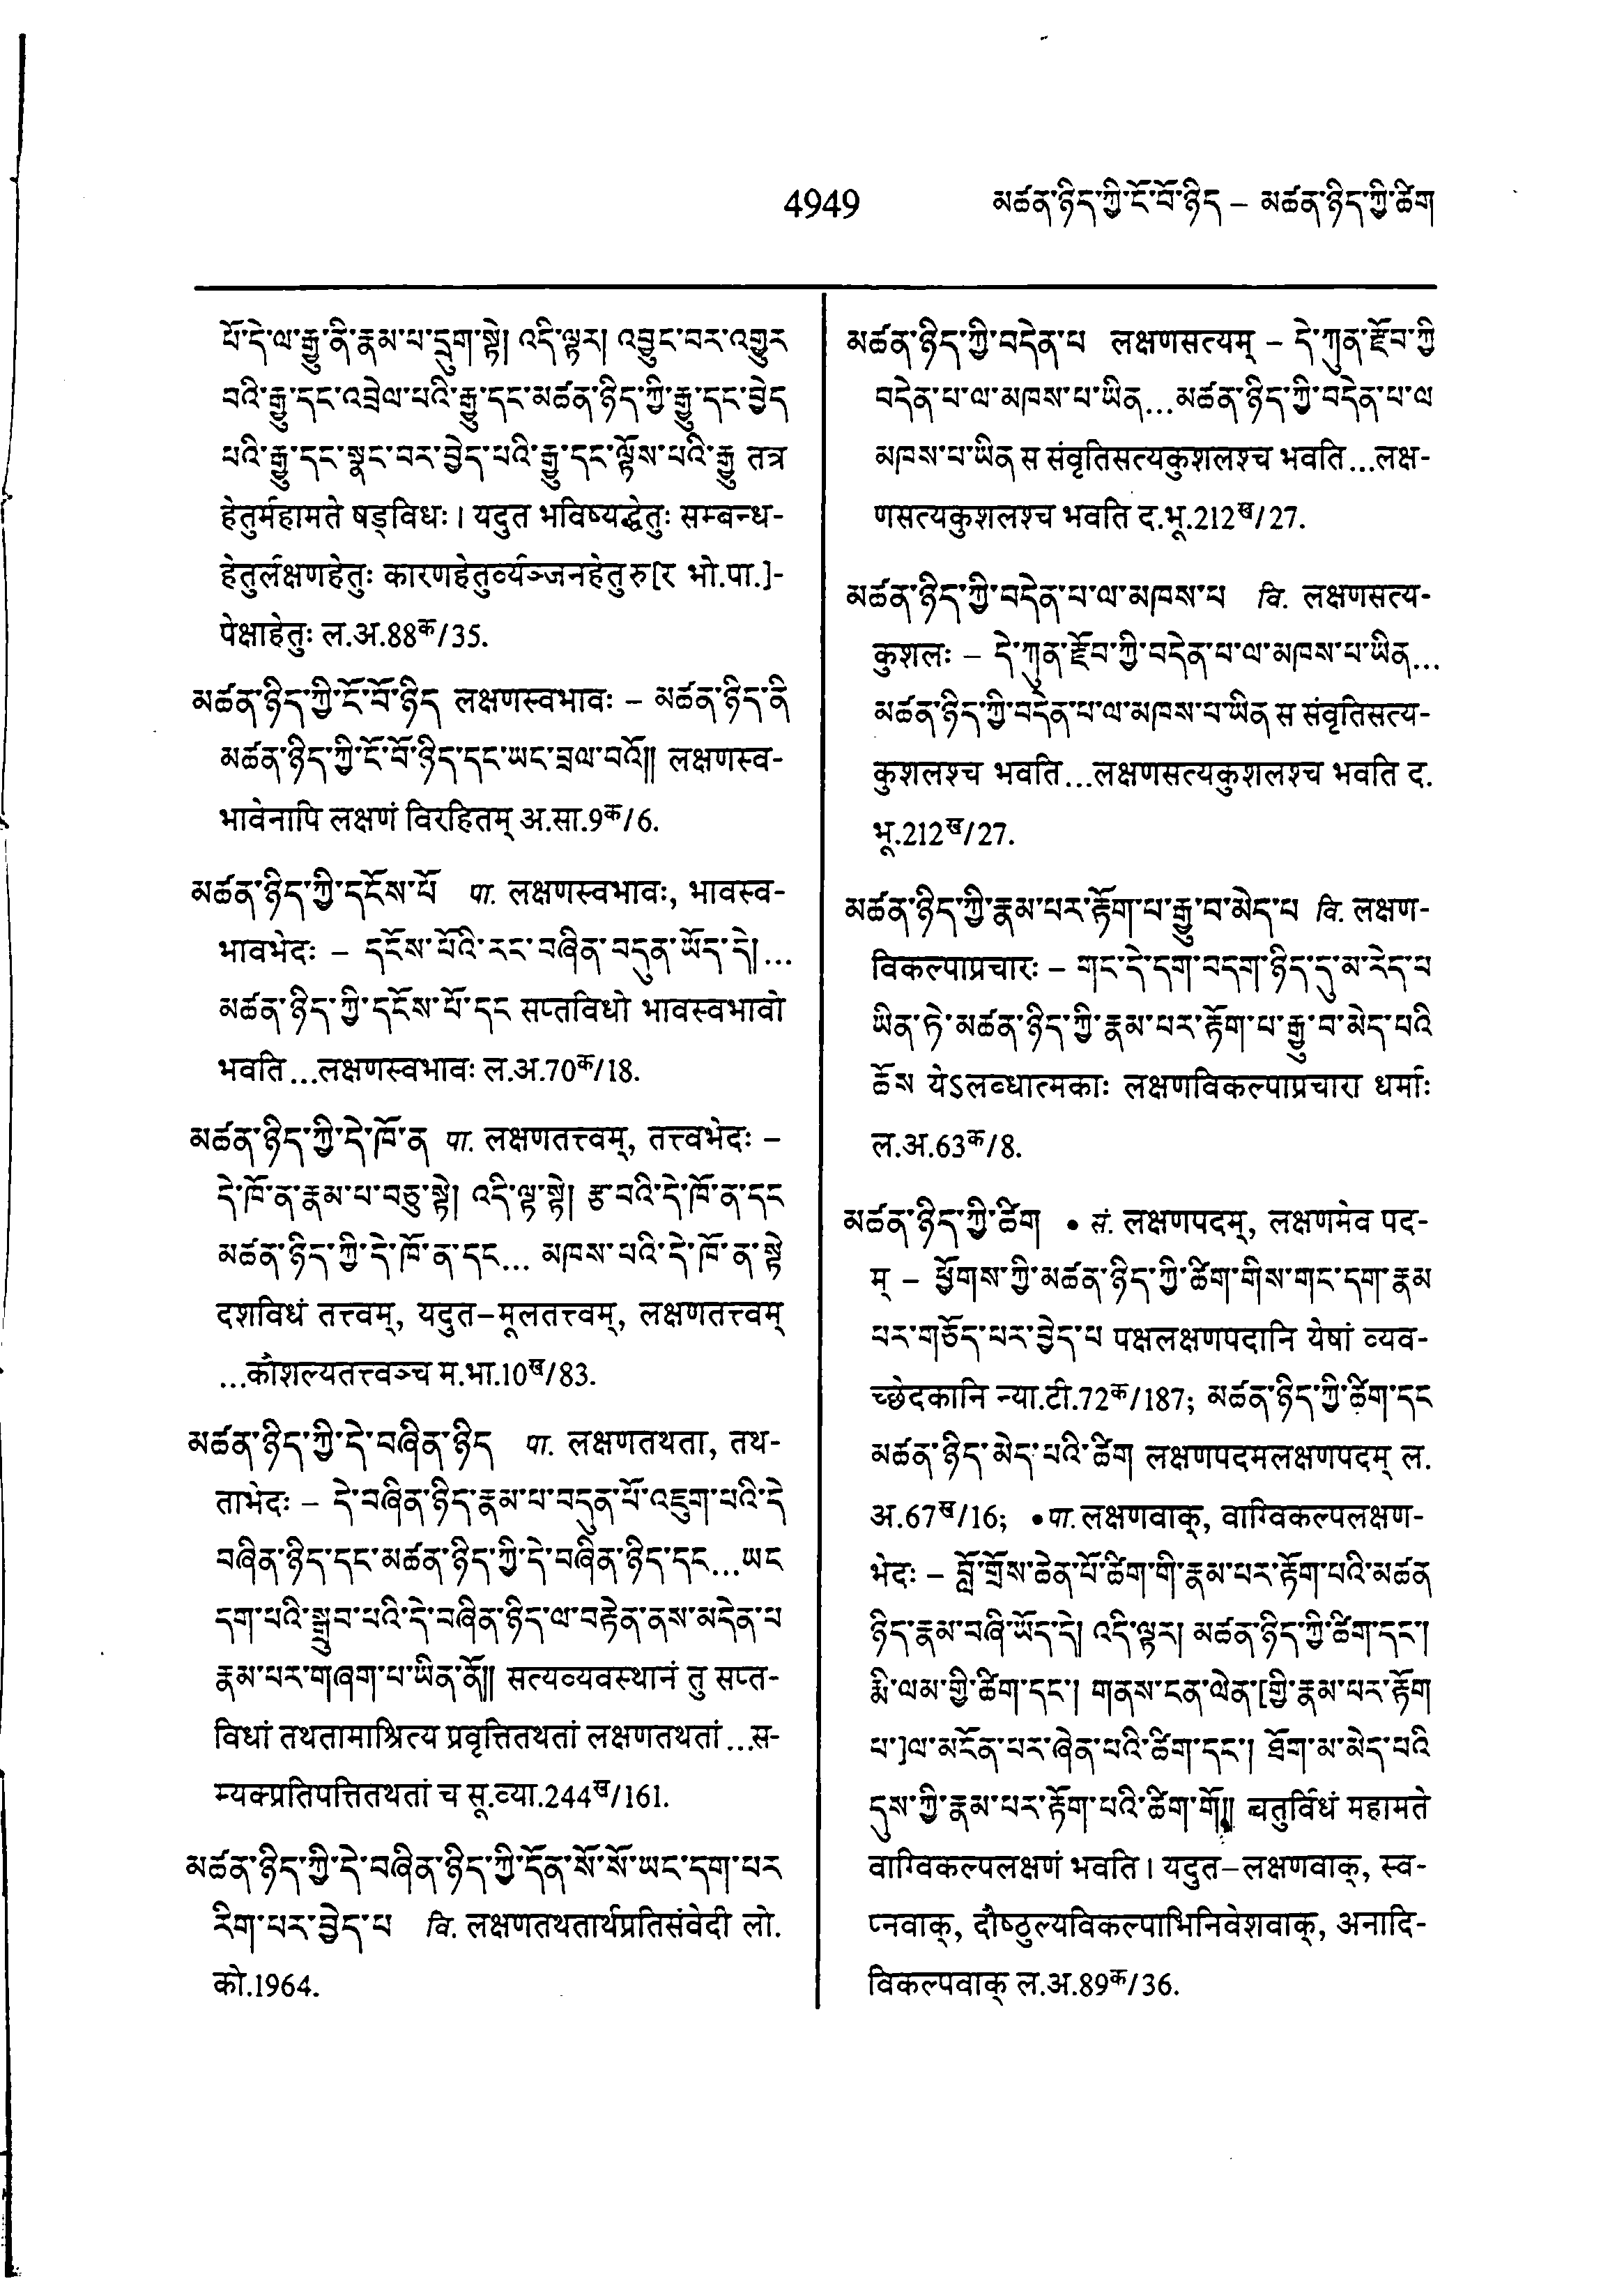 4949
མཚན་ཉིད་ཀྱི་ངོ་བོ་ཉིད – མཚན་ཉིད་ཀྱི་ཚིག
པོ་དེ་ལ་རྒྱུ་ནི་རྣམ་པ་དྲུག་སྟེ། འདི་ལྟར། འབྱུང་བར་འགྱུར
བའི་རྒྱུ་དང་འབྲེལ་པའི་རྒྱུ་དང་མཚན་ཉིད་ཀྱི་རྒྱུ་དང་བྱེད
པའི་རྒྱུ་དང་སྣང་བར་བྱེད་པའི་རྒྱུ་དང་ལྟོས་པའི་རྒྱུ तत्र
हेतुर्महामते षड्विधः। यदुत भविष्यद्धेतुः सम्बन्ध-
हेतुर्लक्षणहेतुः कारणहेतुर्व्यञ्जनहेतुरु[र भो.पा.]-
पेक्षाहेतुः ल.अ.88क/35.
མཚན་ཉིད་ཀྱི་ངོ་བོ་ཉིད लक्षणस्वभावः – མཚན་ཉིད་ནི
མཚན་ཉིད་ཀྱི་ངོ་བོ་ཉིད་དང་ཡང་བྲལ་བའོ།། लक्षणस्व-
भावेनापि लक्षणं विरहितम् अ.सा.9क/6.
མཚན་ཉིད་ཀྱི་དངོས་པོ पा. लक्षणस्वभावः, भावस्व-
भावभेदः – དངོས་པོའི་རང་བཞིན་བདུན་ཡོད་དེ།...
མཚན་ཉིད་ཀྱི་དངོས་པོ་དང सप्तविधो भावस्वभावो
भवति...लक्षणस्वभावः ल.अ.70क/18.
མཚན་ཉིད་ཀྱི་དེ་ཁོ་ན पा. लक्षणतत्त्वम्, तत्त्वभेदः –
དེ་ཁོ་ན་རྣམ་པ་བཅུ་སྟེ། འདི་ལྟ་སྟེ། རྩ་བའི་དེ་ཁོ་ན་དང
མཚན་ཉིད་ཀྱི་དེ་ཁོ་ན་དང... མཁས་པའི་དེ་ཁོ་ན་སྟེ
दशविधं तत्त्वम्, यदुत–मूलतत्त्वम्, लक्षणतत्त्वम्
...कौशल्यतत्त्वञ्च म.भा.10ख/83.
མཚན་ཉིད་ཀྱི་དེ་བཞིན་ཉིད पा. लक्षणतथता, तथ-
ताभेदः – དེ་བཞིན་ཉིད་རྣམ་པ་བདུན་པོ་འཇུག་པའི་དེ
བཞིན་ཉིད་དང་མཚན་ཉིད་ཀྱི་དེ་བཞིན་ཉིད་དང...ཡང
དག་པའི་སྒྲུབ་པའི་དེ་བཞིན་ཉིད་ལ་བརྟེན་ནས་མདེན་པ
རྣམ་པར་གཞག་པ་ཡིན་ནོ།། सत्यव्यवस्थानं तु सप्त-
विधां तथतामाश्रित्य प्रवृत्तितथतां लक्षणतथतां...स-
म्यक्प्रतिपत्तितथतां च सू.व्या.244ख/161.
མཚན་ཉིད་ཀྱི་དེ་བཞིན་ཉིད་ཀྱི་དོན་སོ་སོ་ཡང་དག་པར
རིག་པར་བྱེད་པ वि. लक्षणतथतार्थप्रतिसंवेदी लो.
को.1964.
མཚན་ཉིད་ཀྱི་བདེན་པ लक्षणसत्यम् – དེ་ཀུན་རྫོབ་ཀྱི
བདེན་པ་ལ་མཁས་པ་ཡིན...མཚན་ཉིད་ཀྱི་བདེན་པ་ལ
མཁས་པ་ཡིན स संवृतिसत्यकुशलश्च भवति...लक्ष-
णसत्यकुशलश्च भवति द.भू.212ख/27.
མཚན་ཉིད་ཀྱི་བདེན་པ་ལ་མཁས་པ वि. लक्षणसत्य-
कुशलः – དེ་ཀུན་རྫོབ་ཀྱི་བདེན་པ་ལ་མཁས་པ་ཡིན...
མཚན་ཉིད་ཀྱི་བདེན་པ་ལ་མཁས་པ་ཡིན स संवृतिसत्य-
कुशलश्च भवति...लक्षणसत्यकुशलश्च भवति द.
भू.212ख/27.
མཚན་ཉིད་ཀྱི་རྣམ་པར་རྟོག་པ་རྒྱུ་བ་མེད་པ वि. लक्षण-
विकल्पाप्रचारः – གང་དེ་དག་བདག་ཉིད་དུ་མ་རེད་པ
ཡིན་ཏེ་མཚན་ཉིད་ཀྱི་རྣམ་པར་རྟོག་པ་རྒྱུ་བ་མེད་པའི
ཆོས येऽलब्धात्मकाः लक्षणविकल्पाप्रचारा धर्माः
ल.अ.63क/8.
མཚན་ཉིད་ཀྱི་ཚིག • सं. लक्षणपदम्, लक्षणमेव पद-
म् – ཕྱོགས་ཀྱི་མཚན་ཉིད་ཀྱི་ཚིག་གིས་གང་དག་རྣམ
པར་གཅོད་པར་བྱེད་པ पक्षलक्षणपदानि येषां व्यव-
च्छेदकानि न्या.टी.72क/187; མཚན་ཉིད་ཀྱི་ཚིག་དང
མཚན་ཉིད་མེད་པའི་ཚིག लक्षणपदमलक्षणपदम् ल.
अ.67ख/16; •पा. लक्षणवाक्, वाग्विकल्पलक्षण-
भेदः – བློ་གྲོས་ཆེན་པོ་ཚིག་གི་རྣམ་པར་རྟོག་པའི་མཚན
ཉིད་རྣམ་བཞི་ཡོད་དེ། འདི་ལྟར། མཚན་ཉིད་ཀྱི་ཚིག་དང་།
རྨི་ལམ་གྱི་ཚིག་དང་། གནས་ངན་ལེན་[གྱི་རྣམ་པར་རྟོག
པ་]ལ་མངོན་པར་ཞེན་པའི་ཚིག་དང་། ཐོག་མ་མེད་པའི
དུས་ཀྱི་རྣམ་པར་རྟོག་པའི་ཚིག་གོ།། चतुर्विधं महामते
वाग्विकल्पलक्षणं भवति। यदुत–लक्षणवाक्, स्व-
प्नवाक्, दौष्ठुल्यविकल्पाभिनिवेशवाक्, अनादि-
विकल्पवाक् ल.अ.89क/36.